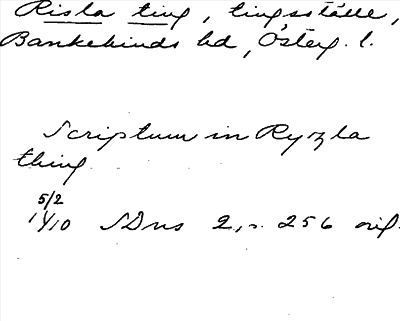 Risla ting, tingsställe,
Bankekinds hd, Österg. l.
Scriptum in Ryzla
thing
5/2
1410 SDns 2, s. 256 orig.